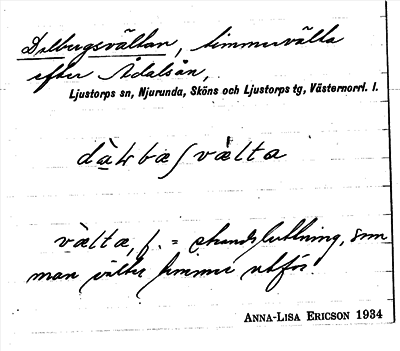 Dalbergsvältan, timmervälta
efter Ådalsån,
Ljustorps sn, Njurunda, Sköns och Ljustorps tg, Västernorrl. l.
välta, f. = strandsluttning, som
man välter timmer utför.
ANNA-LISA ERICSON 1934